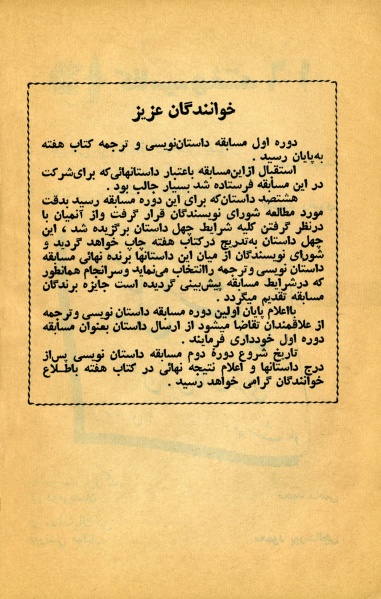 خوانندگان عزیز
دوره اول مسابقه داستان‌نویسی و ترجمه کتاب هفته
به‌پایان رسید .
استقبال ازاین‌مسابقه باعتبار داستانهائی‌که برای‌شرکت
در این مسابقه فرستاده شد بسیار جالب بود .
هشتصد داستان‌که برای این دوره مسابقه رسید بدقت
مورد مطالعه شورای نویسندگان قرار گرفت واز آنمیان با
درنظر گرفتن کلیه شرایط چهل داستان برگزیده شد ، این
چهل داستان به‌تدریج درکتاب هفته چاپ خواهد گردید و
شورای نویسندگان از میان این داستانها برنده نهائی مسابقه
داستان نویسی وترجمه راانتخاب می‌نماید وسرانجام همانطور
که درشرایط مسابقه پیش‌بینی گردیده است جایزه برندگان
مسابقه تقدیم میگردد .
بااعلام پایان اولین دوره مسابقه داستان نویسی وترجمه
از علاقمندان تقاضا میشود از ارسال داستان بعنوان مسابقه
دوره اول خودداری فرمایند .
تاریخ شروع دورهٔ دوم مسابقه داستان نویسی پس‌از
درج داستانها و اعلام نتیجه نهائی در کتاب هفته باطلاع
خوانندگان گرامی خواهد رسید .